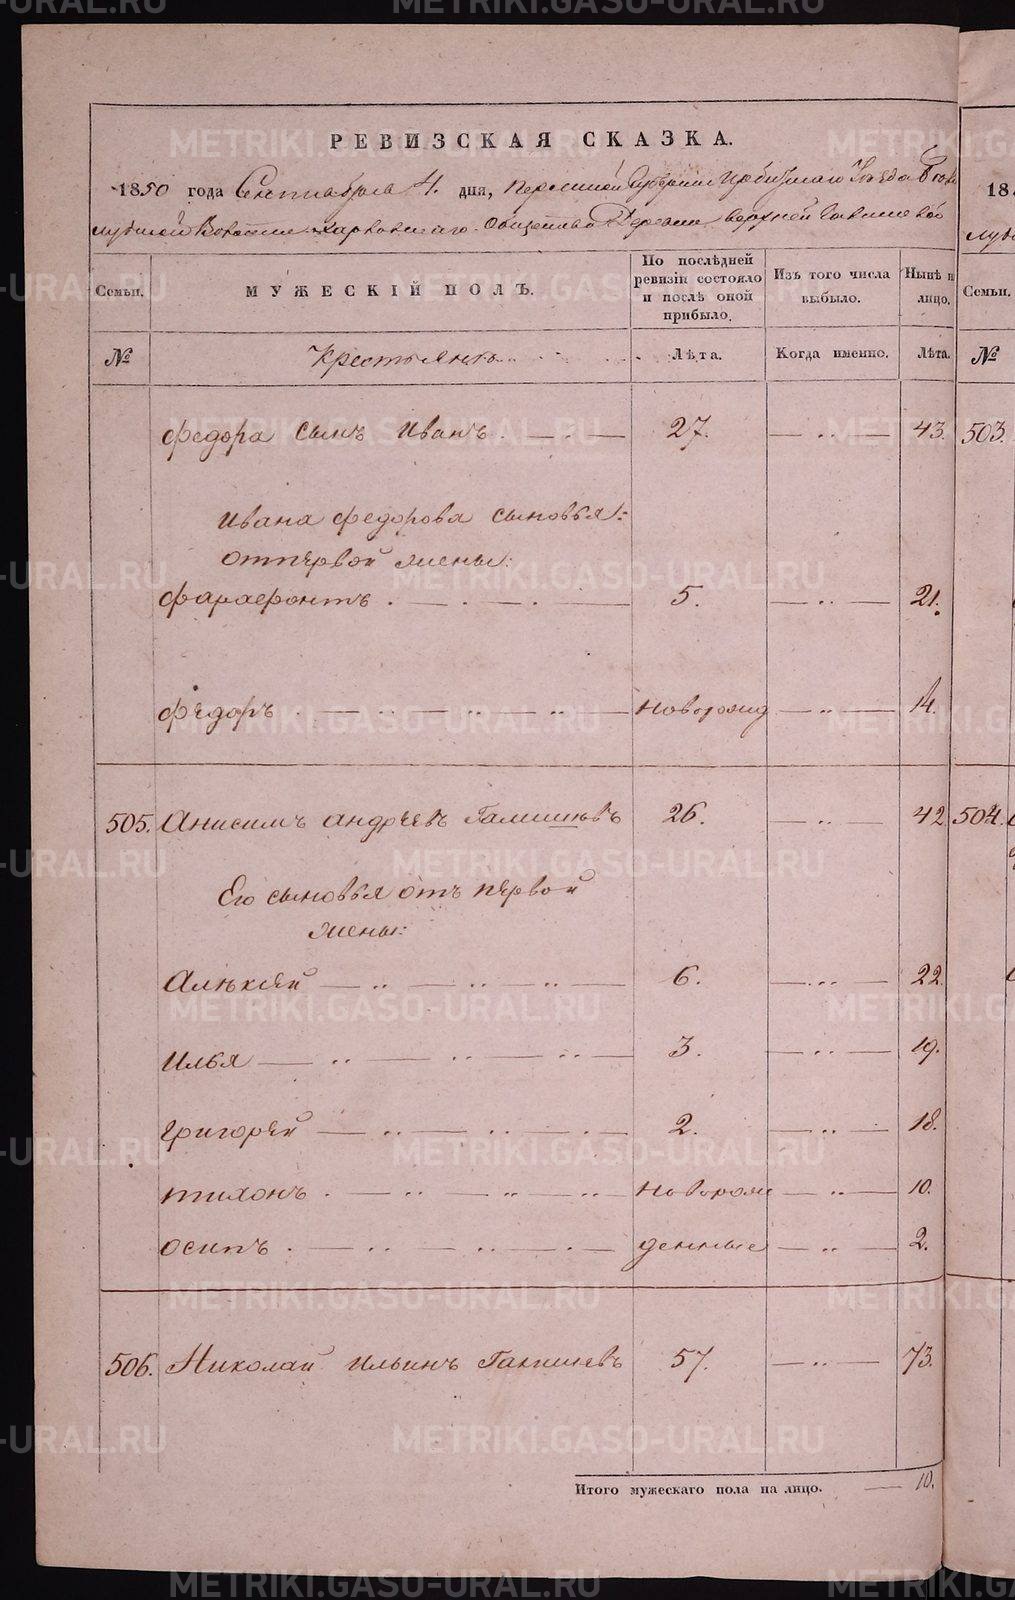 РЕВИЗСКАЯ СКАЗКА.
1850 года Сентября 4. дня, Пермской Губернии Ирбитскаго Уезда
Волости Харловскаго Общества Деревни Верхней
Семьи. МУЖЕСКІЙ ПОЛЪ. По послѣдней ревизіи состояло и послѣ оной прибыло. Изъ того числа выбыло. Нынѣ н лицо. Семьи.
№ Крестьянъ Лѣта. Когда именно. Лѣта. №
Федора сынъ Иванъ 27. 43. 503.
Ивана Федорова сыновья:
отпервой жены:
Фараефонтъ 5. 21.
Федоръ Новорожд 14.
505. Анисимъ Андреевъ 26. 42 504.
Его сыновья отъ первой
жены:
Алексей 6. 22.
Илья 3. 19.
Григорей 2. 18.
Тихонъ Новорож 10.
Осипъ денные 2.
506. Николай Ильинъ 57. 73.
Итого мужескаго пола на лицо. 10.
METRIKI.GASO-URAL.RU